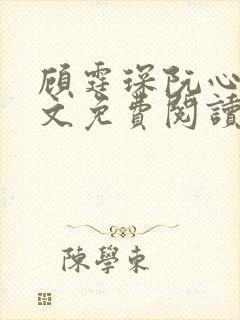 顧霆琛阮心
文免費閱讀
陳學東